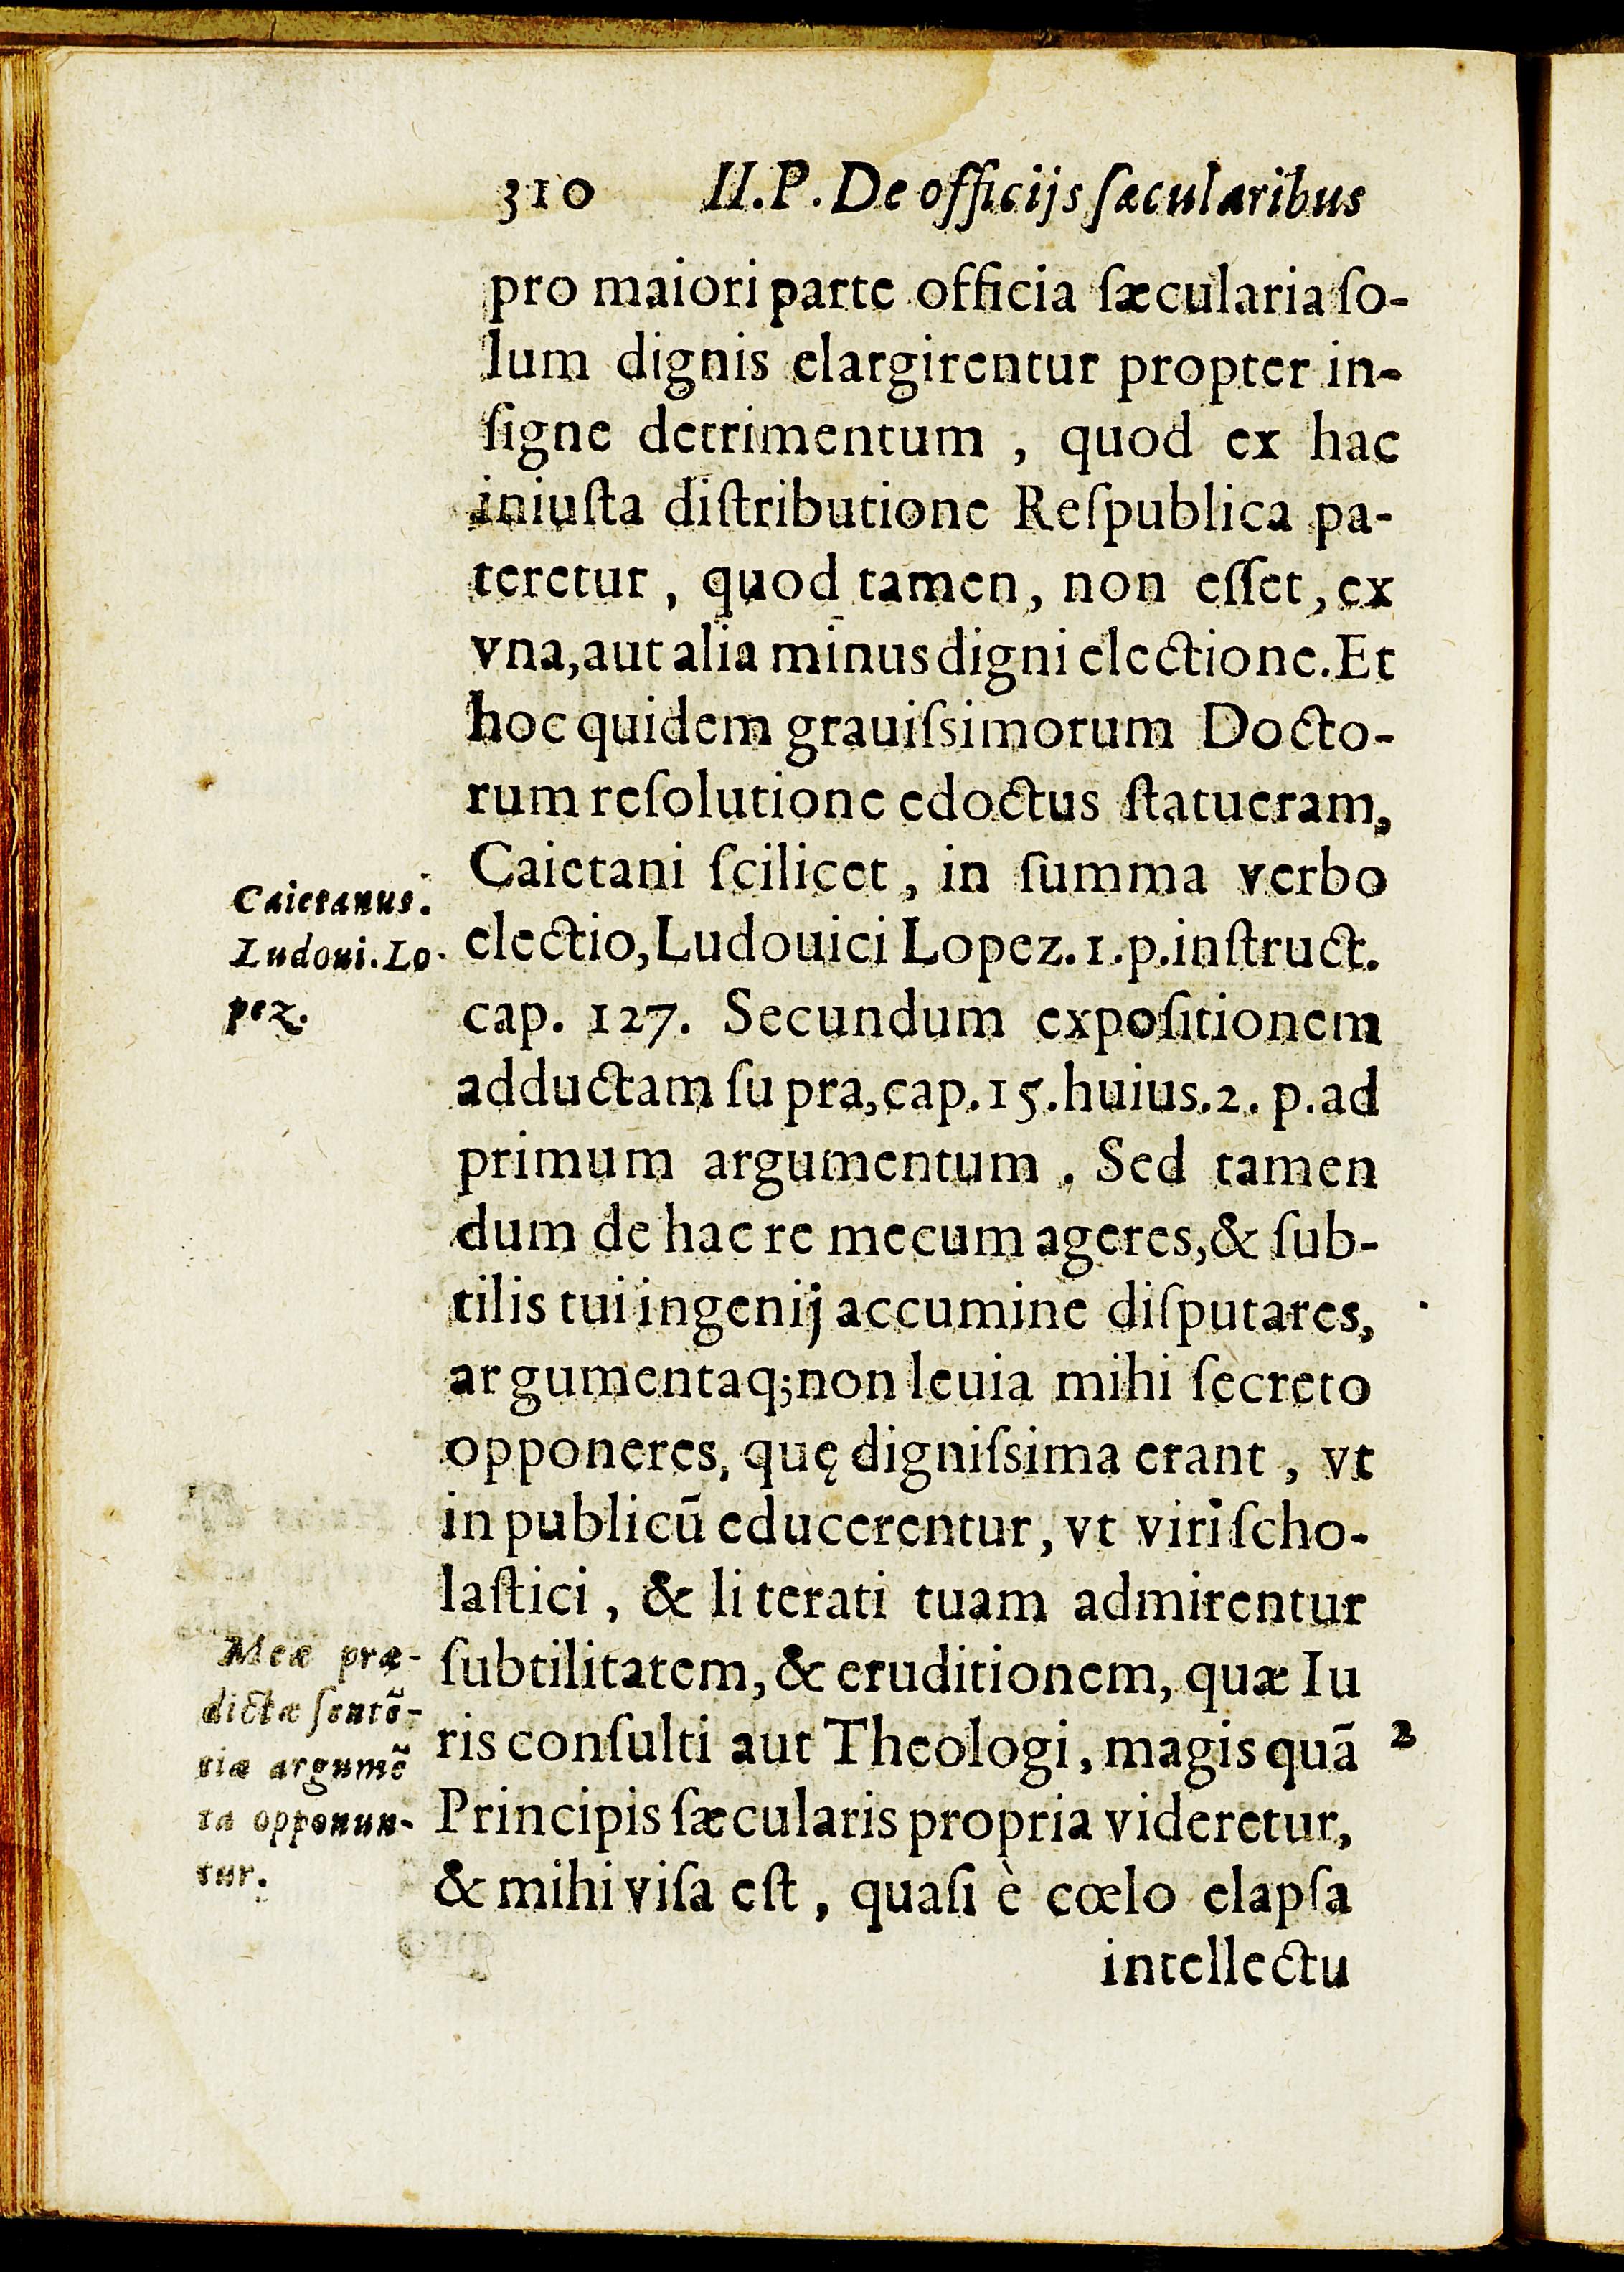 310 II.P. De officijs sæcularibus
pro maiori parte officia sæcularia so-
lum dignis elargirentur propter in-
signe detrimentum , quod ex hac
iniusta distributione Respublica pa-
teretur , quod tamen, non esset, ex
vna, aut alia minus digni electione. Et
hoc quidem grauissimorum Docto-
rum resolutione edoctus statueram,
Caietani scilicet , in summa verbo
electio, Ludouici Lopez. 1. p. instruct.
cap. 127. Secundum expositionem
adductam supra, cap. 15. huius. 2. p. ad
primum argumentum . Sed tamen
dum de hac re mecum ageres, & sub-
tilis tui ingenij accumine disputares,
argumentaq; non leuia mihi secreto
opponeres, quę dignissima erant , vt
in publicū educerentur, vt viri scho-
lastici , & literati tuam admirentur
subtilitatem, & eruditionem, quæ Iu
ris consulti aut Theologi, magis quā
Principis sæcularis propria videretur,
& mihi visa est , quasi è cœlo elapsa
intellectu
Caietanus.
Ludoui. Lo-
pez.
Meæ præ-
dictæ sentē-
tiæ argumē
ta opponun-
tur.
2